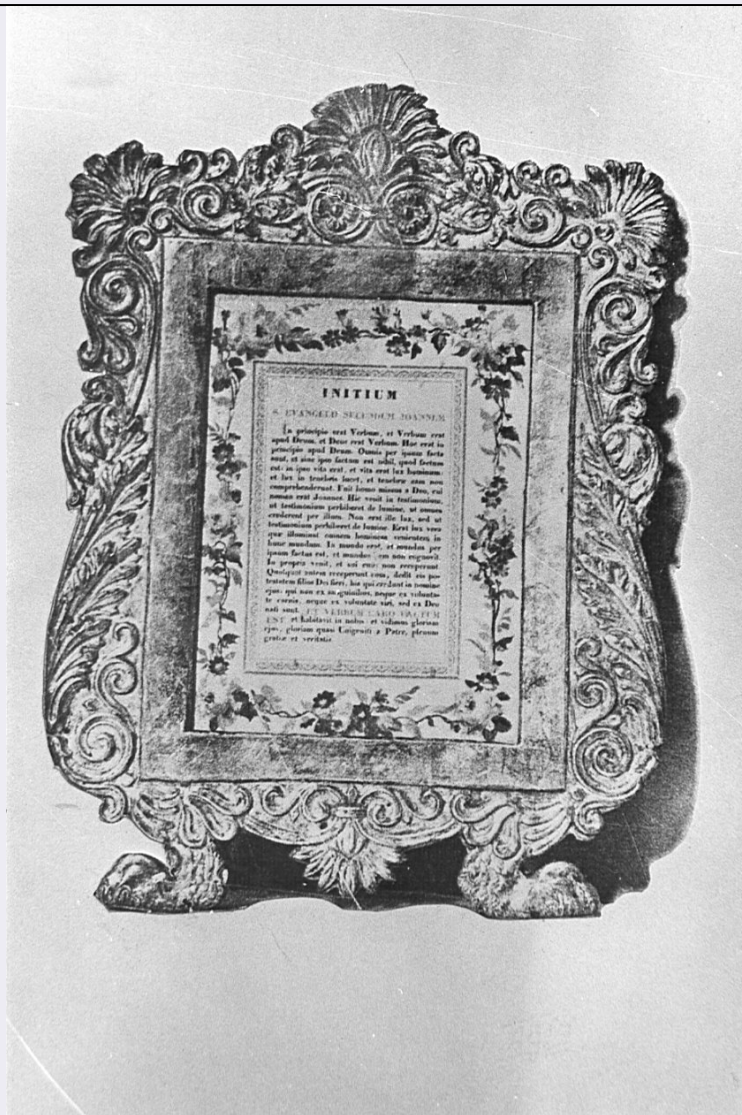 INITIUM
S. EVANGELII SECUNDUM JOANNEM
In principio erat Verbum, et Verbum erat
apud Deum, et Deus erat Verbum. Hoc erat in
principio apud Deum. Omnia per ipsum facta
sunt, et sine ipso factum est nihil, quod factum
est: in ipso vita erat, et vita erat lux hominum:
et lux in tenebris lucet, et tenebræ eam non
comprehenderunt. Fuit homo missus a Deo, cui
nomen erat Joannes. Hic venit in testimonium,
ut testimonium perhiberet de lumine, ut omnes
crederent per illum. Non erat ille lux, sed ut
testimonium perhiberet de lumine. Erat lux vera
quæ illuminat omnem hominem venientem in
hunc mundum. In mundo erat, et mundus per
ipsum factus est, et mundus eum non cognovit.
In propria venit, et sui eum non receperunt.
Quotquot autem receperunt eum, dedit eis po-
testatem filios Dei fieri, his qui credunt in nomine
ejus: qui non ex sanguinibus, neque ex volunta-
te carnis, neque ex voluntate viri, sed ex Deo
nati sunt. ET VERBUM CARO FACTUM
EST et habitavit in nobis et vidimus gloriam
ejus, gloriam quasi Unigeniti a Patre, plenum
gratiæ et veritatis